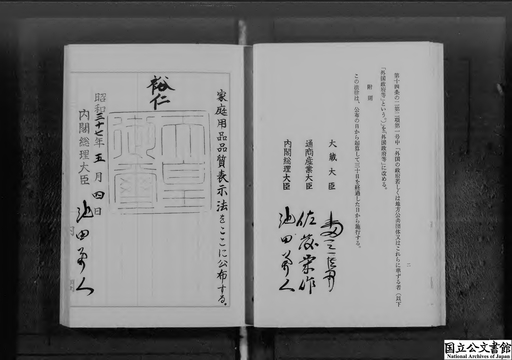 第十四条の二第二項第一号中「外国の政府若しくは地方公共団体又はこれらに準ずる者（以下
「外国政府等」という。）」を「外国政府等」に改める。
附則
この法律は、公布の日から起算して三十日を経過した日から施行する。
大蔵大臣
通商産業大臣 佐藤栄作
内閣総理大臣 池田勇人
家庭用品品質表示法をここに公布する。
裕仁
昭和三十七年五月四日
内閣総理大臣 池田勇人
国立公文書館
National Archives of Japan